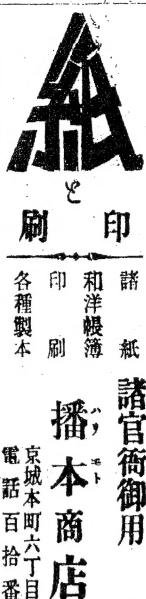 紙
と
印刷
諸紙
和洋帳簿
印刷
各種製本
諸官衙御用
播本商店
ハリモト
京城本町六丁目
電話百拾番